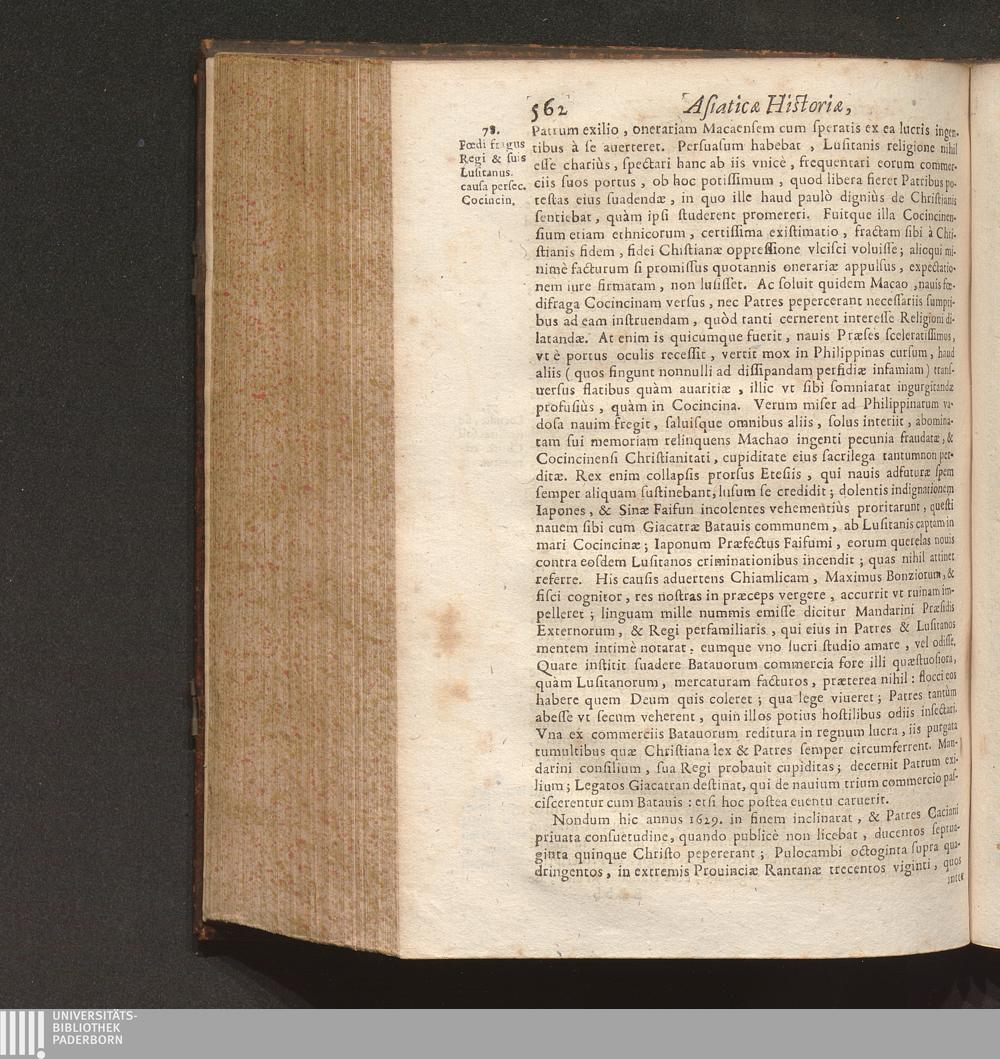 562 Aſiaticæ Hiſtoriæ,
78.
Fœdi fragus
Regi & ſuis
Luſitanus.
cauſa perſec.
Cocincin.
Patrum exilio , onerariam Macaenſem cum ſperatis ex ea lucris ingen-
tibus à ſe auerteret. Perſuaſum habebat , Luſitanis religione nihil
eſſe chariùs , ſpectari hanc ab iis vnicè , frequentari eorum commer-
ciis ſuos portus , ob hoc potiſſimum , quod libera fieret Patribus po-
teſtas eius ſuadendæ , in quo ille haud paulò digniùs de Chriſtianis
ſentiebat , quàm ipſi ſtuderent promereri. Fuitque illa Cocincinen-
ſium etiam ethnicorum , certiſſima exiſtimatio , fractam ſibi à Chri-
ſtianis fidem , fidei Chiſtianæ oppreſſione vlciſci voluiſſe ; alioqui mi-
nimè facturum ſi promiſſus quotannis onerariæ appulſus , expectatio-
nem iure firmatam , non luſiſſet. Ac ſoluit quidem Macao , nauis fœ-
difraga Cocincinam verſus , nec Patres pepercerant neceſſariis ſumpti-
bus ad eam inſtruendam , quòd tanti cernerent intereſſe Religioni di-
latandæ. At enim is quicumque fuerit , nauis Præſes ſceleratiſſimus,
vt è portus oculis receſſit , vertit mox in Philippinas curſum , haud
aliis ( quos fingunt nonnulli ad diſſipandam perfidiæ infamiam ) tranſ-
uerſus flatibus quàm auaritiæ , illic vt ſibi ſomniarat ingurgitandæ
profuſiùs , quàm in Cocincina. Verum miſer ad Philippinarum va-
doſa nauim fregit , ſaluiſque omnibus aliis , ſolus interiit , abomina-
tam ſui memoriam relinquens Machao ingenti pecunia fraudatæ , &
Cocincinenſi Chriſtianitati , cupiditate eius ſacrilega tantumnon per-
ditæ. Rex enim collapſis prorſus Eteſiis , qui nauis adfuturæ ſpem
ſemper aliquam ſuſtinebant, luſum ſe credidit ; dolentis indignationem
Iapones , & Sinæ Faifun incolentes vehementiùs proritarunt , queſti
nauem ſibi cum Giacatræ Batauis communem , ab Luſitanis captam in
mari Cocincinæ ; Iaponum Præfectus Faifumi , eorum querelas nouis
contra eoſdem Luſitanos criminationibus incendit ; quas nihil attinet
referre. His cauſis aduertens Chiamlicam , Maximus Bonziorum , &
fiſci cognitor , res noſtras in præceps vergere , accurrit vt ruinam im-
pelleret ; linguam mille nummis emiſſe dicitur Mandarini Præſidis
Externorum , & Regi perfamiliaris , qui eius in Patres & Luſitanos
mentem intimè notarat : eumque vno lucri ſtudio amare , vel odiſſe.
Quare inſtitit ſuadere Batauorum commercia fore illi quæſtuoſiora,
quàm Luſitanorum , mercaturam facturos , præterea nihil : flocci eos
habere quem Deum quis coleret ; qua lege viueret ; Patres tantùm
abeſſe vt ſecum veherent , quin illos potius hoſtilibus odiis inſectari.
Vna ex commerciis Batauorum reditura in regnum lucra , iis purgata
tumultibus quæ Chriſtiana lex & Patres ſemper circumferrent. Man-
darini conſilium , ſua Regi probauit cupiditas ; decernit Patrum exi-
lium ; Legatos Giacatran deſtinat, qui de nauium trium commercio paſ-
ciſcerentur cum Batauis : etſi hoc poſtea euentu caruerit.
Nondum hic annus 1629. in finem inclinarat , & Patres Caciani
priuata conſuetudine, quando publicè non licebat , ducentos ſeptua-
ginta quinque Chriſto pepererant ; Pulocambi octoginta ſupra qua-
dringentos , in extremis Prouinciæ Rantanæ trecentos viginti , quos
inter
UNIVERSITÄTS-
BIBLIOTHEK
PADERBORN